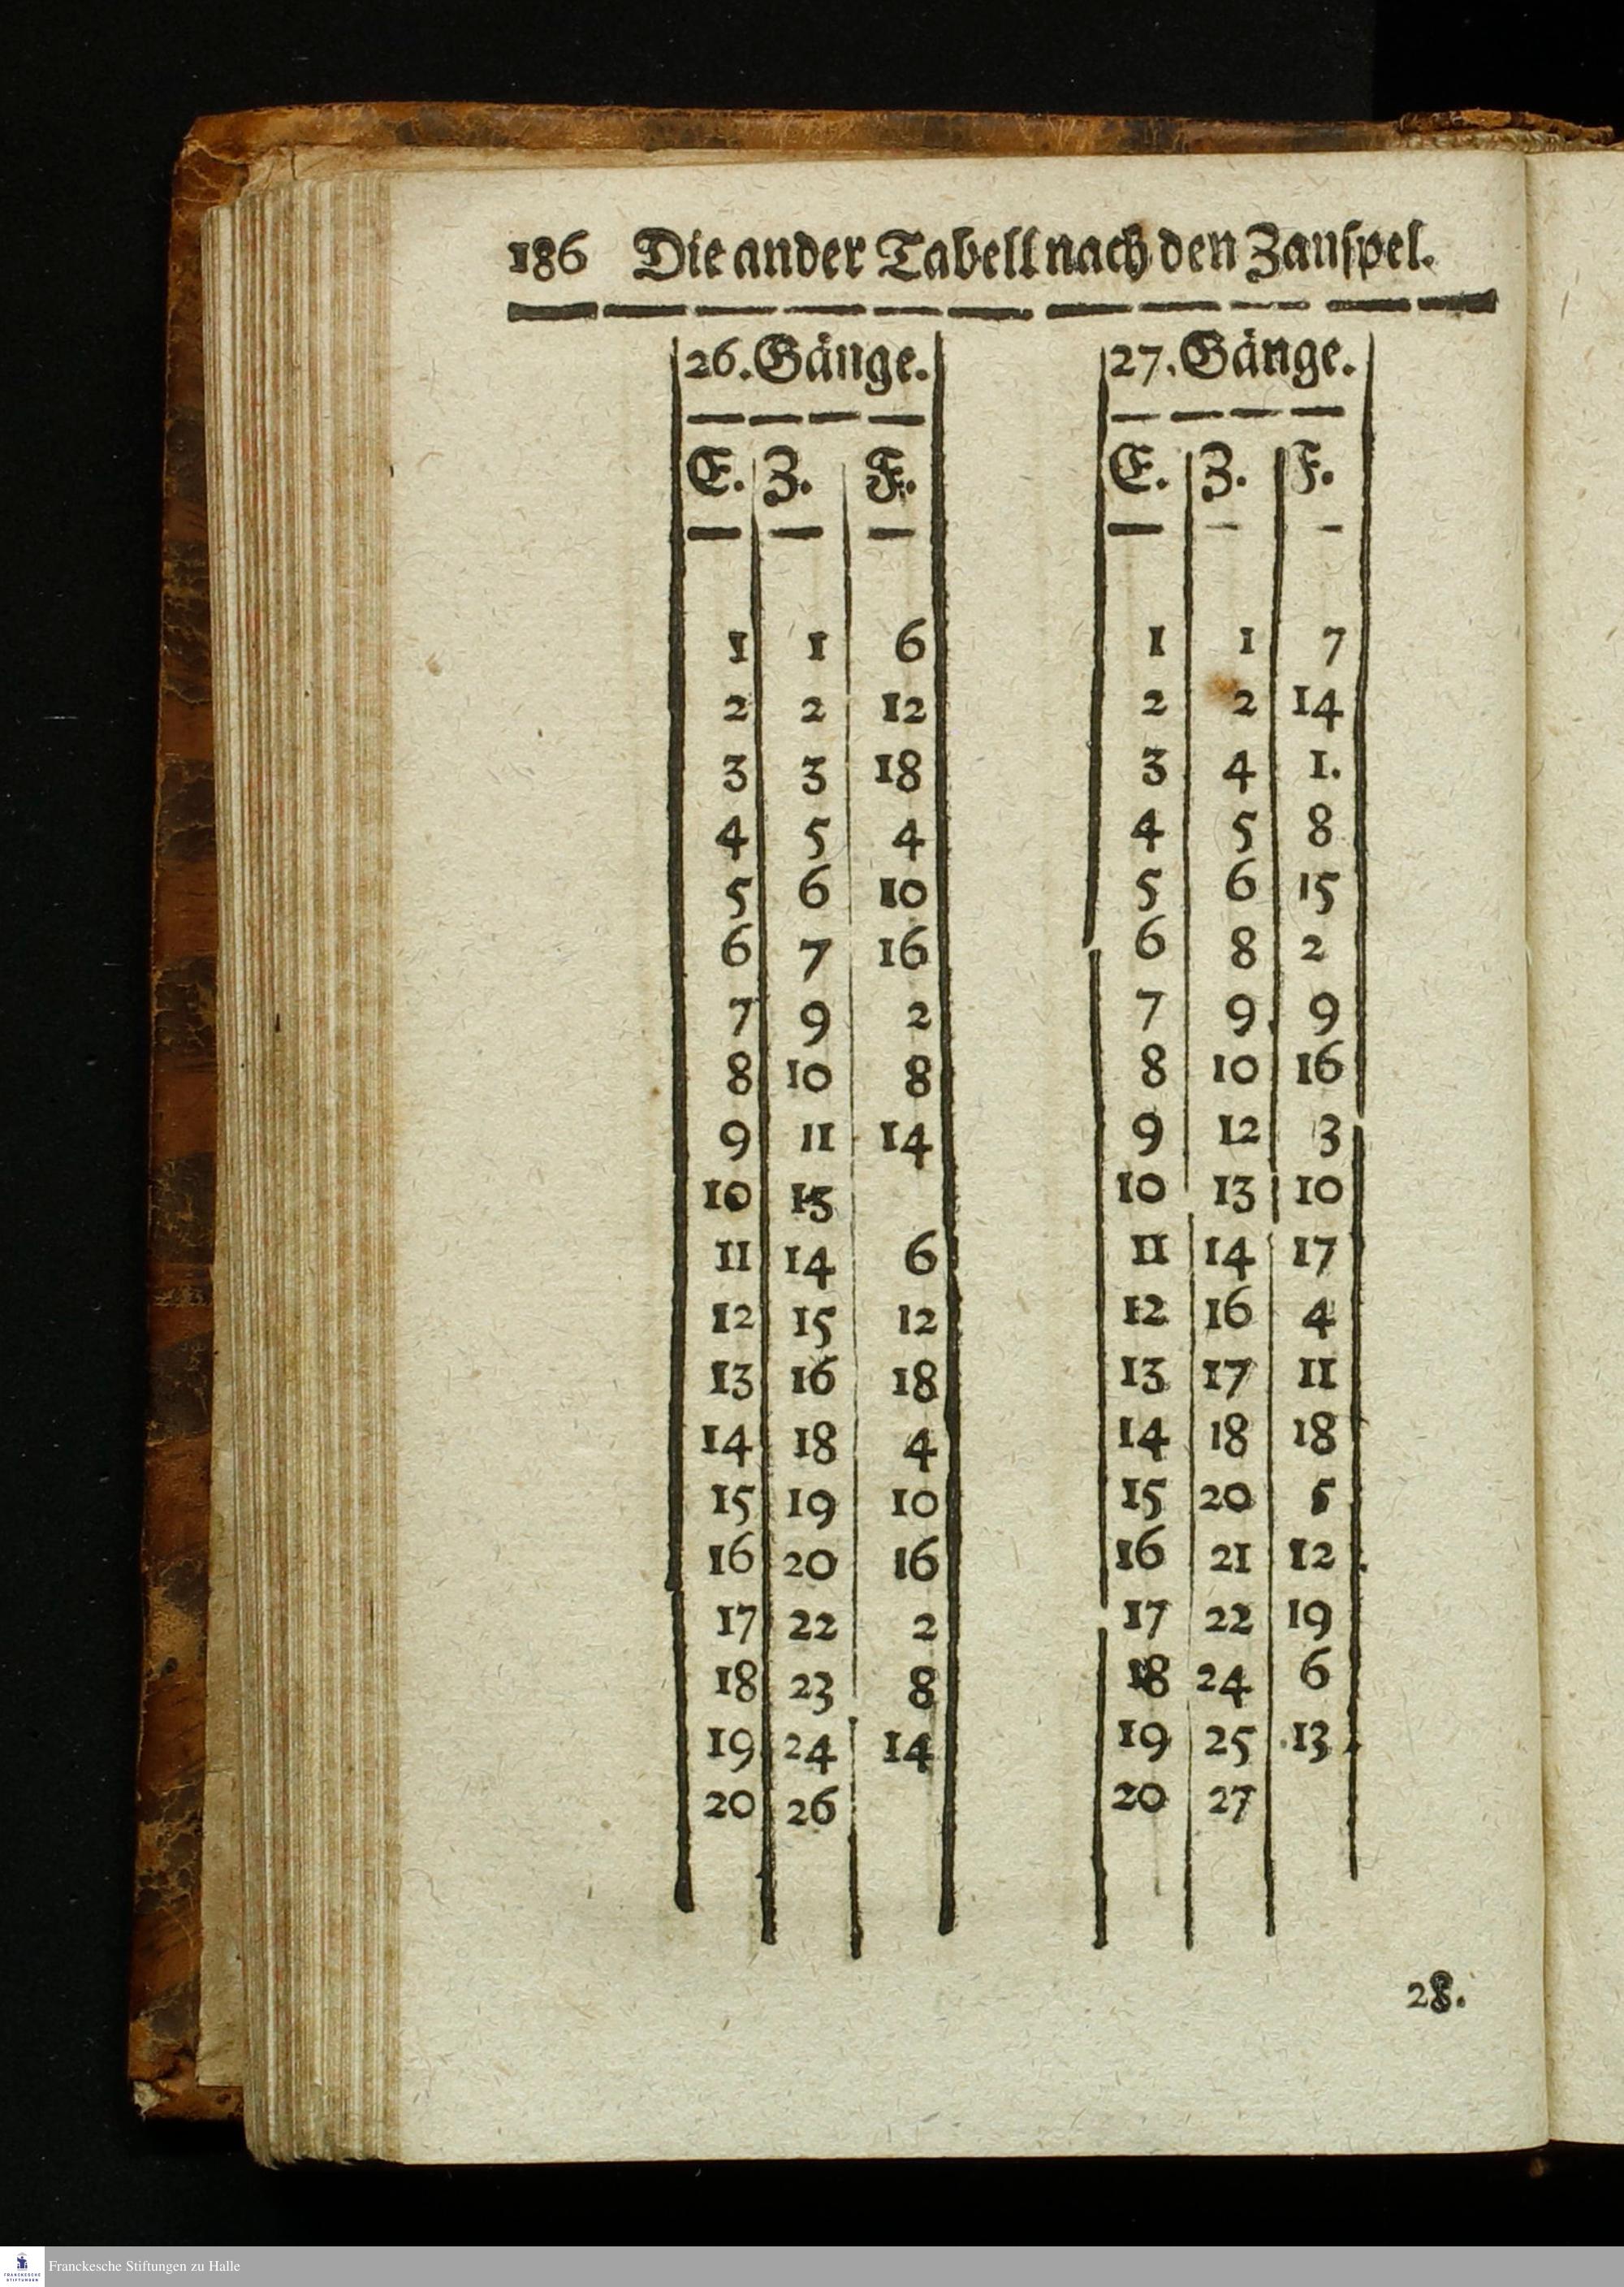 186 Die ander Tabell nach den Zauspel.
26. Gänge.
E. Z. F.
1 1 6
2 2 12
3 3 18
4 5 4
5 6 10
6 7 16
7 9 2
8 10 8
9 11 14
10 13
11 14 6
12 15 12
13 16 18
14 18 4
15 19 10
16 20 16
17 22 2
18 23 8
19 24 14
20 26
27. Gänge.
E. Z. F.
1 1 7
2 2 14
3 4 1.
4 5 8
5 6 15
6 8 2
7 9 9
8 10 16
9 12 3
10 13 10
11 14 17
12 16 4
13 17 11
14 18 18
15 20 5
16 21 12
17 22 19
18 24 6
19 25 13
20 27
28.
Franckesche Stiftungen zu Halle
FRANCKESCHE
STIFTUNGEN